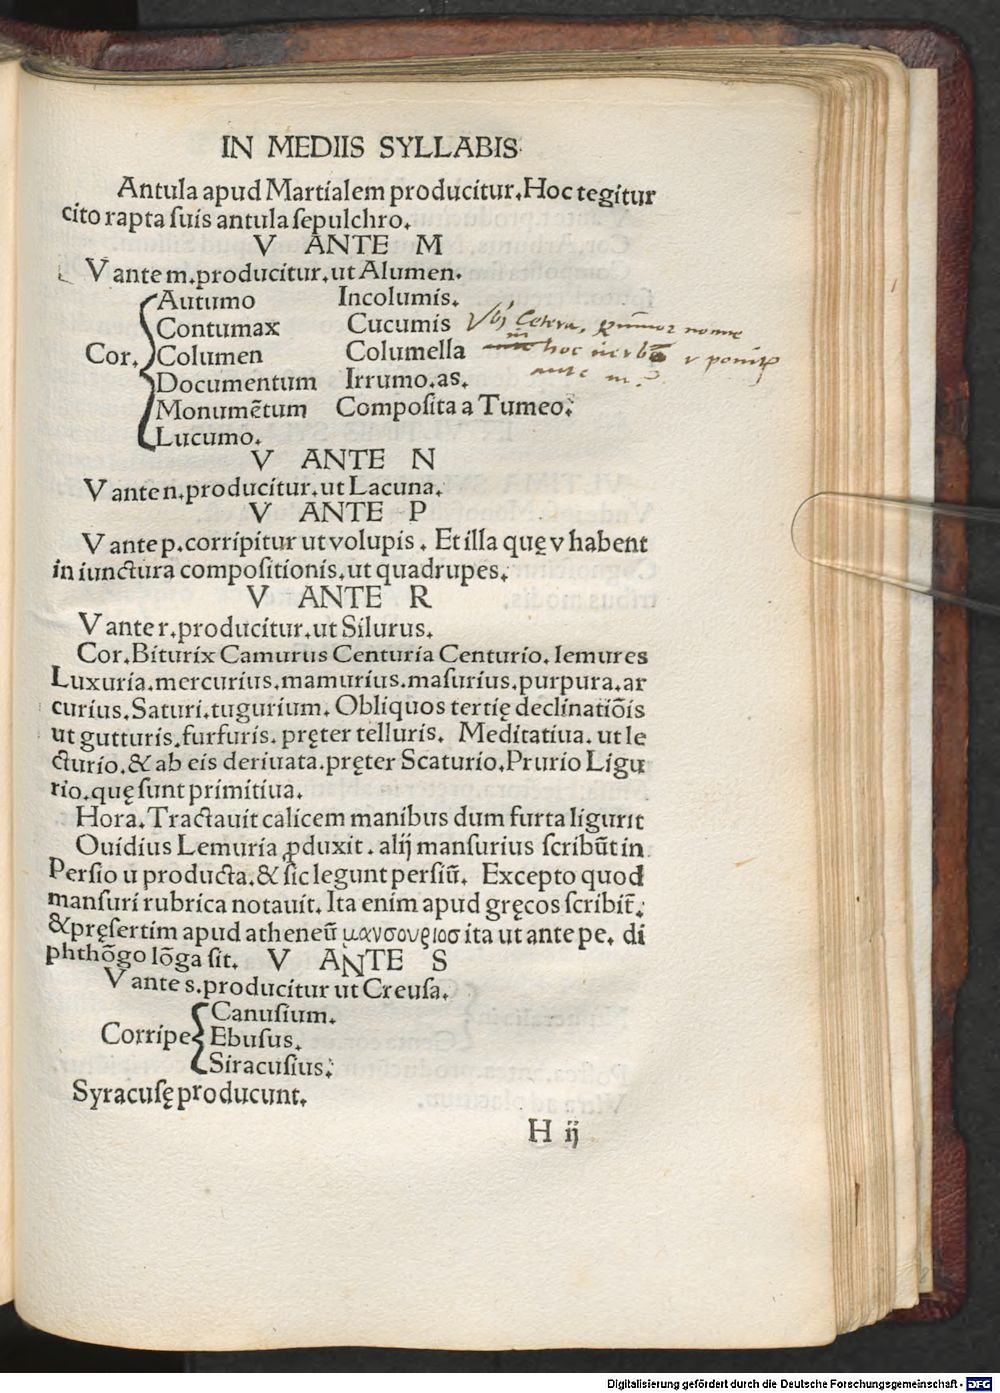 IN MEDIIS SYLLABIS
Antula apud Martialem producitur. Hoc tegitur
cito rapta ſuis antula ſepulchro.
V ANTE M
V ante m. producitur. ut Alumen.
Autumo Incolumis.
Contumax Cucumis
Cor. Columen Columella
Documentum Irrumo. as.
Monumẽtum Compoſita a Tumeo:
Lucumo.
Vbi Cetera,
hoc uerbũ v ponitur
ante m.
V ANTE N
V ante n. producitur. ut Lacuna.
V ANTE P
V ante p. corripitur ut volupis. Et illa quę v habent
in iunctura compoſitionis. ut quadrupes.
V ANTE R
V ante r. producitur. ut Silurus.
Cor. Biturix Camurus Centuria Centurio. lemures
Luxuria. mercurius. mamurius. maſurius. purpura. ar
curius. Saturi. tugurium. Obliquos tertię declinatiõis
ut gutturis. furfuris. pręter telluris. Meditatiua. ut le
cturio. & ab eis deriuata. pręter Scaturio. Prurio Ligu
rio. quę ſunt primitiua.
Hora. Tractauit calicem manibus dum furta ligurit
Ouidius Lemuria ꝓduxit. alij manſurius ſcribũt in
Perſio u producta. & ſic legunt perſiũ. Excepto quod
manſuri rubrica notauit. Ita enim apud gręcos ſcribit̃:
& pręſertim apud atheneũ μανσουριοσ ita ut ante pe. di
phthõgo lõga ſit. V ANTE S
V ante s. producitur ut Creuſa.
Canuſium.
Corripe Ebuſus.
Siracuſius:
Syracuſę producunt.
H ij
Digitalisierung gefördert durch die Deutsche Forschungsgemeinschaft - DFG